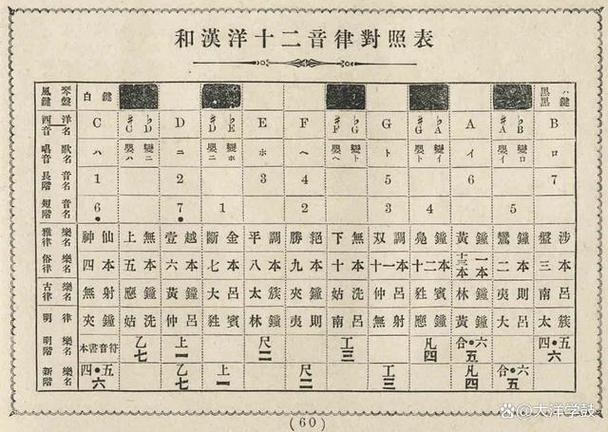 和漢洋十二音律對照表
風琴鍵盤 白鍵 黒ハ黒鍵
西洋音名 C ♯C ♭D D ♯D ♭E E F ♯F ♭G G ♯G ♭A A ♯A ♭B B
唱歌音名 ハ 嬰ハ 變ニ ニ 嬰ニ 變ホ ホ ヘ 嬰ヘ 變ト ト 嬰ト 變イ イ 嬰イ 變ロ ロ
長音階名 1 2 3 4 5 6 7
短音階名 6• 7• 1 2 3 4 5
雅樂律名 神仙 上無 壹越 斷金 平調 勝絕 下無 双調 鳧鐘 黃鐘 鸞鐘 盤涉
俗樂律名 四本 五本 六本 七本 八本 九本 十本 十一本 十二本 一本 十三本 二本 三本
古樂律名 無射 應鐘 黃鐘 大呂 太簇 夾鐘 姑洗 仲呂 蕤賓 林鐘 夷則 南呂
明律 夾鐘 姑洗 仲呂 蕤賓 林鐘 夷則 南呂 無射 應鐘 黃鐘 大呂 太簇
明樂階名 本書音符 乙七 上一 尺二 工三 凡四 合•六五 四•五六
新樂階名 四•五六 乙七 上一 尺二 工三 凡四 合•六五
(60)
大洋学鼓